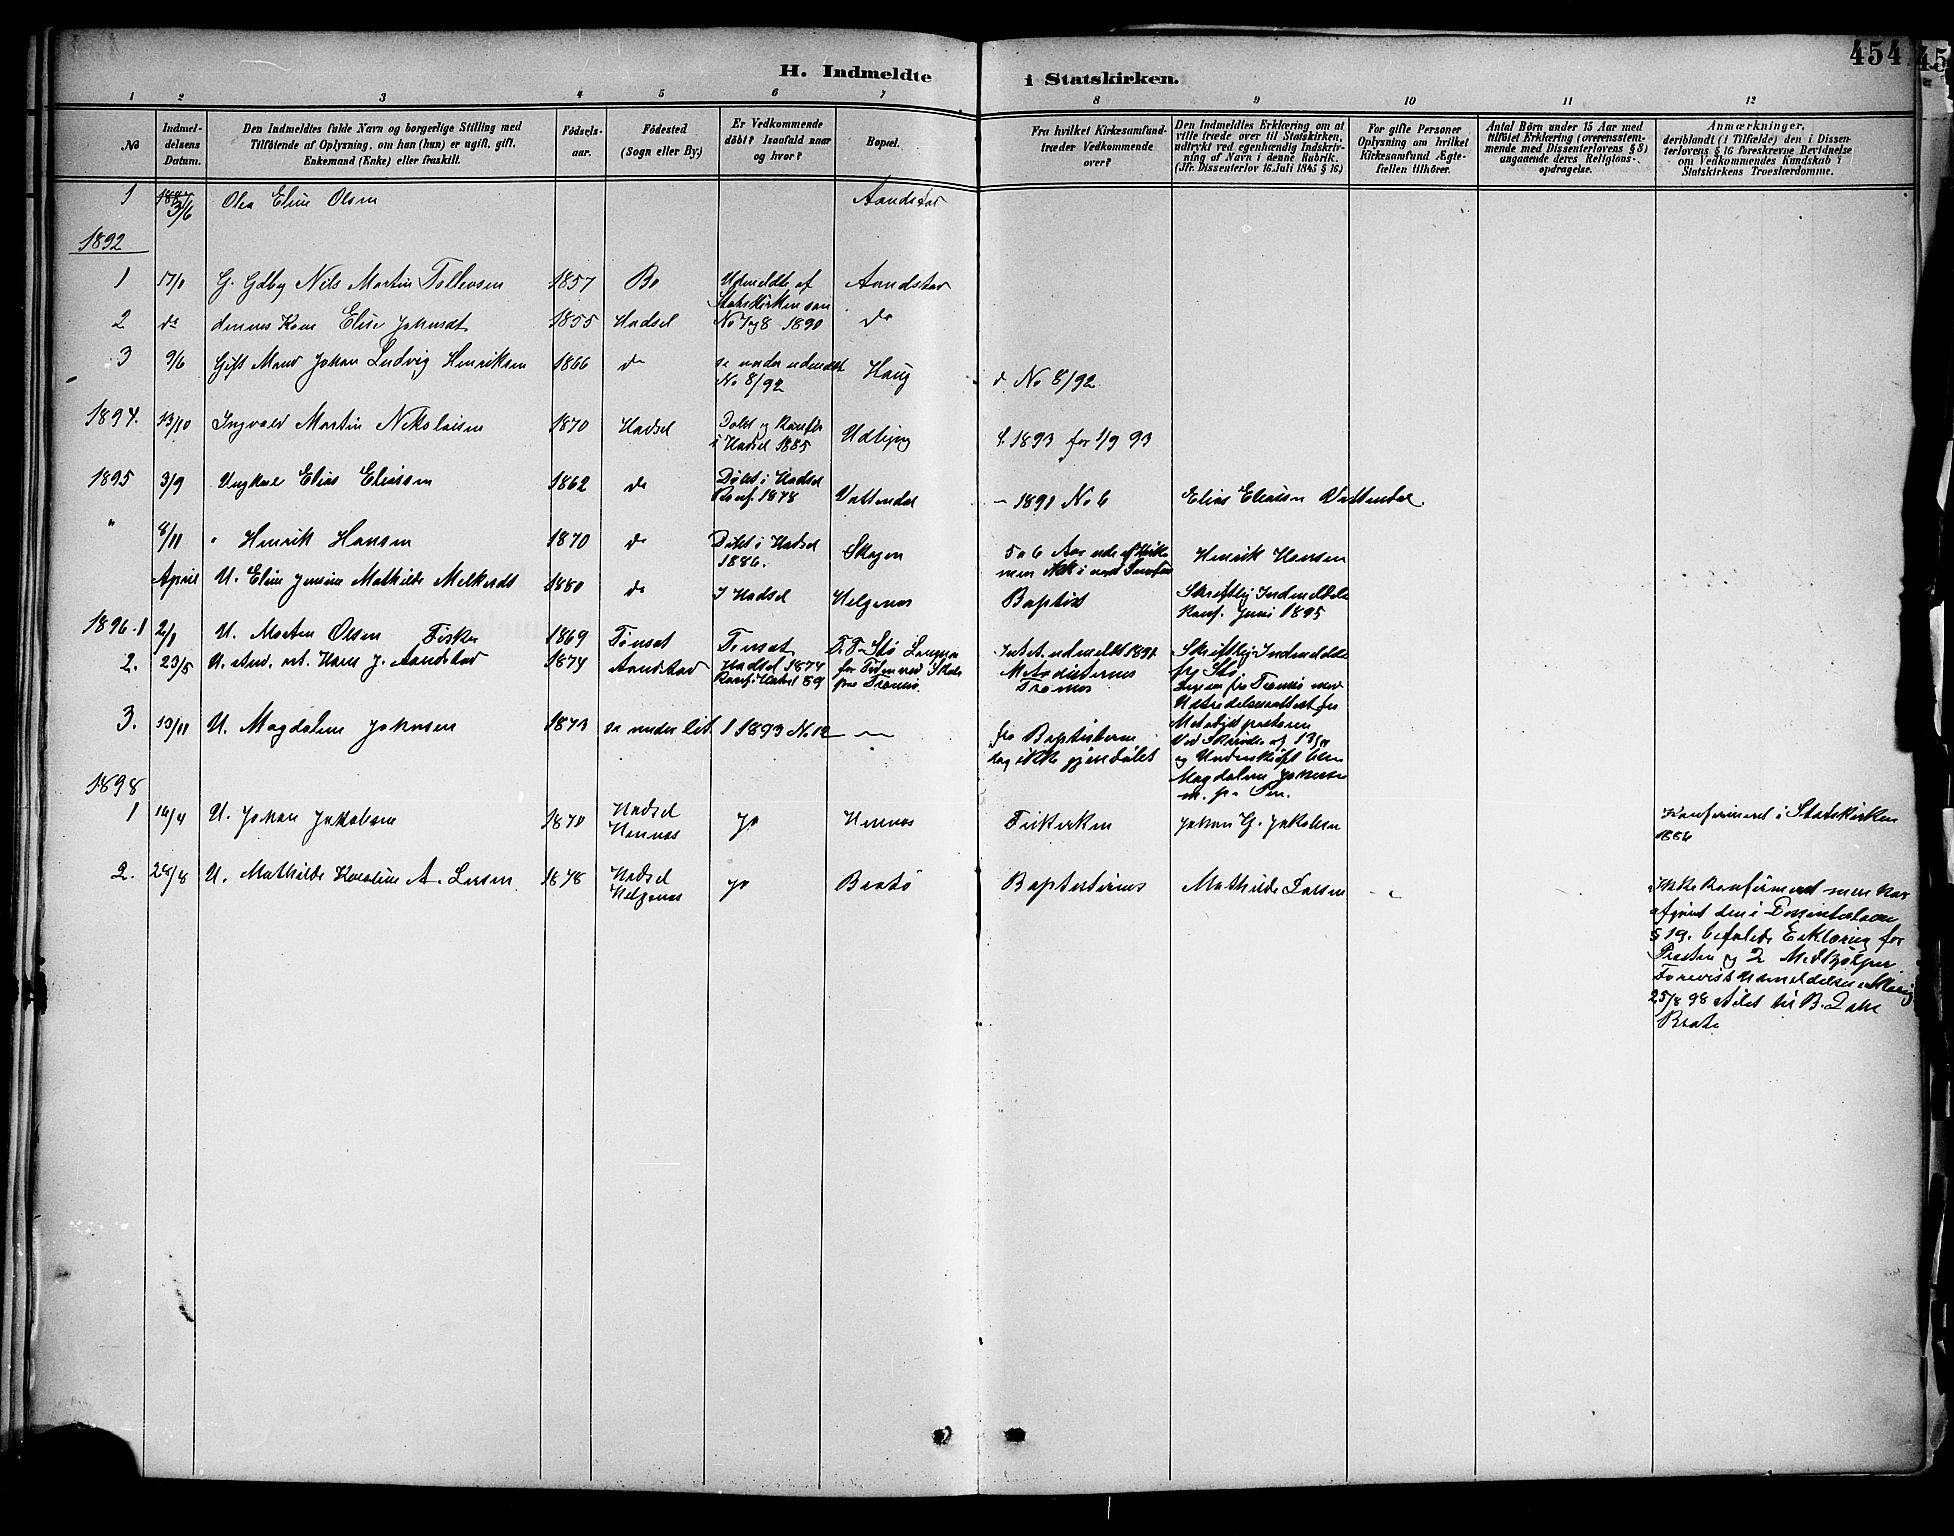 454
H. Indmeldte i Statskirken.
1 2 3 4 5 6 7 8 9 10 11 12
No
Indmel-
delsens
Datum.
Den Indmeldtes fulde Navn og borgerlige Stilling med
Tilföiende af Oplysning, om han (hun) er ugift, gift,
Enkemand (Enke) eller fraskilt.
Födsels-
aar.
Födested
(Sogn eller By.)
Er Vedkommende
döbt? Isaafald naar
og hvor?
Bopæl.
Fra hvilket Kirkesamfund
træder Vedkommende
over?
Den Indmeldtes Erklæring om at
ville træde over til Statskirken,
udtrykt ved egenhændig Indskriv-
ning af Navn i denne Rubrik.
(Jfr. Dissenterlov 16. Juli 1845 § 16.)
For gifte Personer
Oplysning om hvilket
Kirkesamfund Ægte-
fællen tilhörer.
Antal Börn under 15 Aar med
tilföiet Erklæring (overensstem-
mende med Dissenterlovens § 8)
angaaende deres Religions-
opdragelse.
Anmærkninger,
deriblandt (i Tilfælde) den i Dissen-
terlovens § 16 foreskrevne Bevidnelse
om Vedkommendes Kundskab i
Statskirkens Troeslærdomme.
1 3/6 Olea Eline Olsen Aandstad
1892
1 G. Gdby Nils Martin Tollevsen 1857 Bø Udmeldte af Aandstad
Statskirken som
2 do dennes Kone Elise Johnsdt 1855 Hadsel No 7 og 8 1890 do
3 9/6 Gift Mand Johan Ludvig Henriksen 1866 do se under udmeldt Haug
No 8/92 No 8/92
1894. 13/10 Ingvald Martin Nikolaisen 1870 Hadsel Døbt og Konfir
i Hadsel 1885 Udbjerg 1893 for 1/9 93
1895 3/9 Ungkarl Elias Eliassen 1862 do Døbt i Hadsel
Konf. 1878 Vattendal – 1891 No 6 Elias Eliassen Vattendal
" 8/11 " Henrik Hansen 1870 do Døbt i Hadsel
1886. Skagen 5 a 6 Aar ude af Kirke Henrik Hansen
April U. Eline Jensine Mathilde Melkersdt 1880 do I Hadsel Helgenes Baptist Skriftlig Indmeldelse
Konf. Juni 1895
1896. 1 2/1 U. Morten Olsen Fisker 1869 Tønset Tønset
2. 23/5 U. Hans J. Aandstad 1874 Aandstad Hadsel 1874
Konf. Hadsel 89 fra Tromsø. Methodisternes
Tromsø
Skriftlig Indmeldelse
fra Stø
fra Tromsø med
Udtrædelsesattest fra
Metodistpastoren
3. 13/11 U. Magdalene Johnsen 1873 se under lit. I 1893 No. 12 – fra Baptisterne
dog ikke gjendøbt
og Underskrift
Magdalene Johnsen
m. p. Pen.
1898
1 U. Johan Jakobsen 1870 Hadsel
Hennes ja Hennes Frikirken Johan G. Jakobsen Konfirmeret i Statskirken
1886
2. 28/8 U. Mathilde Karoline A. Larsen 1878 Hadsel
Helgenes ja Brotø Baptisternes Mathilde Larsen –
Ikke konfirmeret men har
afgivet den i Dissenterloven
§ 19. befalede Erklæring for
Presten og 2 Medhjælper
25/8 98 stilet til B.